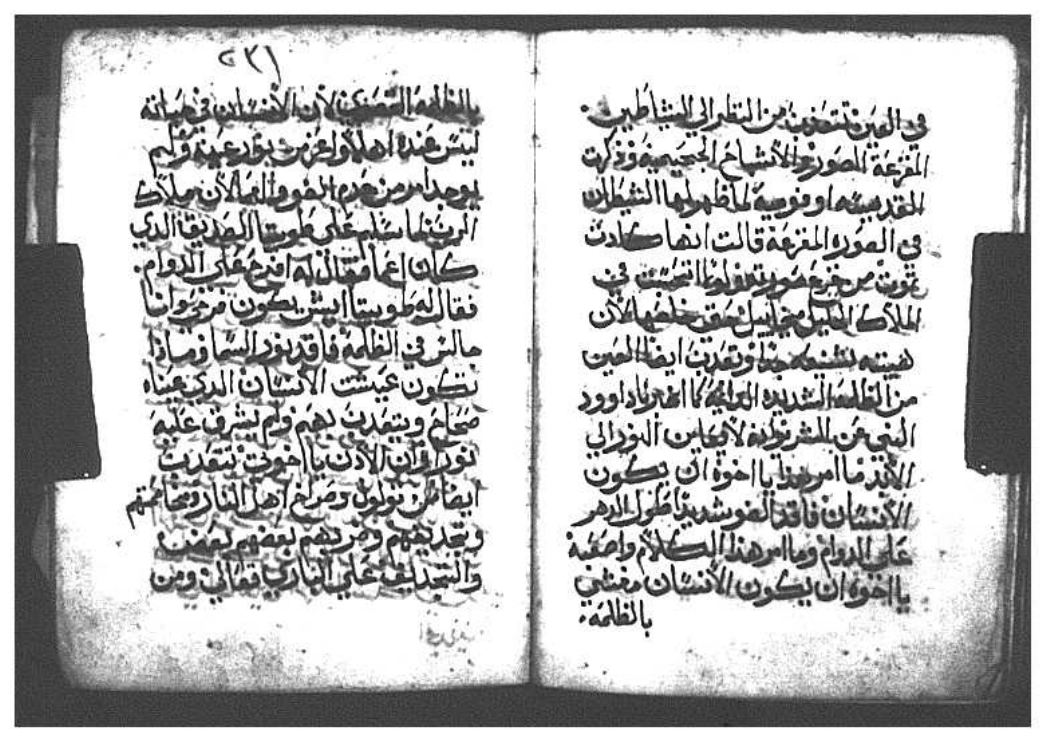 في العين فتتعذب من النظر الي الشياطين.
المفزعة الصور والاشباح الجحيمية وذكرت
القديسه اوفومية لما ظهر لها الشيطان
في الصوره المفزعة قالت انها كادت
تموت من فزع صورته ولولا
الملاك الجليل ميخاييل خلصها لان
هيبته بشيعه جدا وتعذب ايضا العين
من الظلمه الشديده كما اخبر داوود
النبي عن الاشرار انه لا يعاين النور الي
الابد ما امر هذا يا اخوه ان يكون
الانسان فاقد الضو شديدا طول الدهر
علي الدوام وما امر هذا الكلام واصعبه
يا اخوه ان يكون الانسان مغشي
بالظلمه.
٢٣١
بالظلمه لان الانسان في حياته
ليس عنده اعز من نور عينه ولم
يوجد امر من عدم الضو والعما لان ملاك
الرب لما سلم علي طوبيا الصديق الذي
كان اعما فقال له افرح علي الدوام.
فقال له طوبيا ايش يكون فرحي وانا
جالس في الظلمة فاقد نور السما وماذا
تكون عيشت الانسان الذي عيناه
صحاح ويتعذب بهم ولم يشرق عليه
نورا وان الاذن يا اخوتي تتعذب
ايضا من ولول وصراخ اهل النار
وتعذيبهم وضربهم بعضهم بعض
والتجديف علي الباري تعالي ومن